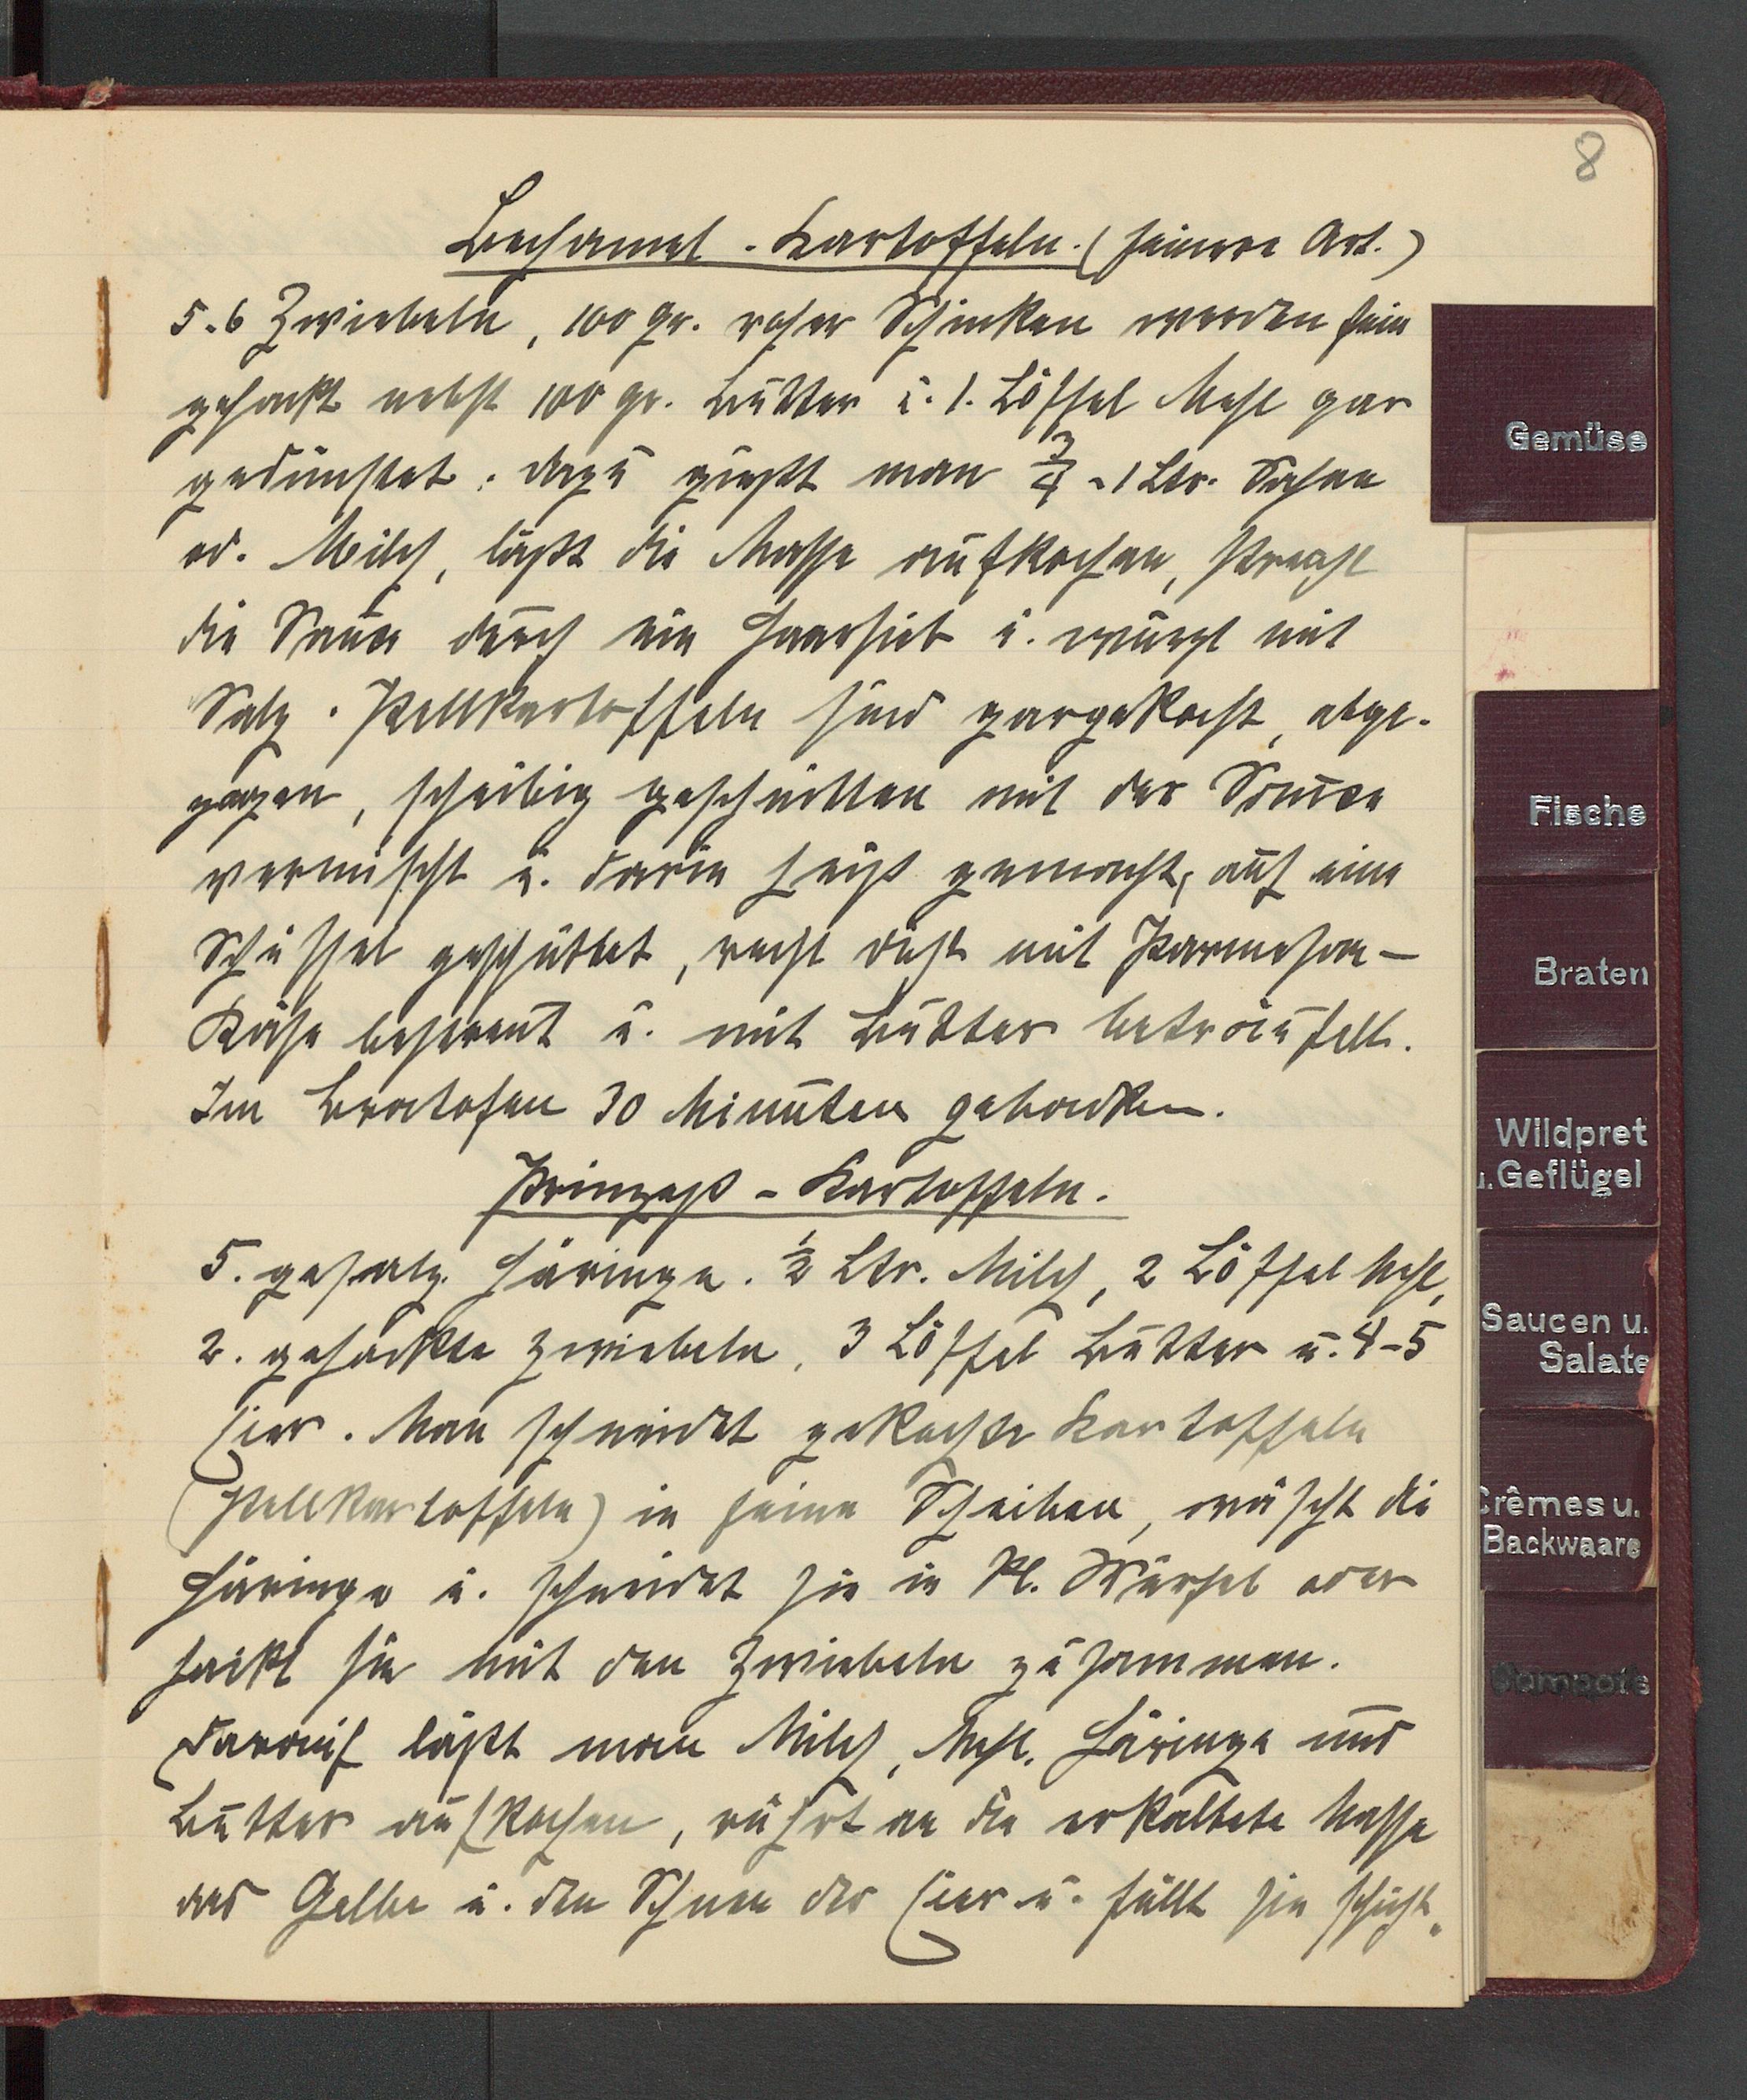 8
Bechamel-Kartoffeln. (feinere Art.)
5-6 Zwiebeln, 100 gr. roher Schinken werden fein
gehackt nebst 100 gr. Butter u. 1. Löffel Mehl gar
gedünstet; dazu gießt man 3/4 - 1 Ltr. Sahne
od. Milch, läßt die Masse aufkochen, streicht
die Sauce durch ein Haarsieb u. würzt mit
Salz. Pellkartoffeln sind gargekocht, abge-
zogen, scheibig geschnitten mit der Sauce
vermischt u. darin heiß gemacht, auf eine
Schüssel geschüttet, recht dicht mit Parmesan-
Käse bestreut u. mit Butter beträufelt.
Im Bratofen 30 Minuten gebacken.
Prinzeß-Kartoffeln.
5. gesalz. Häringe. 1/2 Ltr. Milch, 2 Löffel Mehl,
2. gehackte Zwiebeln, 3 Löffel Butter u. 4-5
Eier. Man schneidet gekochte Kartoffeln
(Pellkartoffeln) in feine Scheiben, wäscht die
Häringe u. schneidet sie in kl. Würfel oder
hackt sie mit den Zwiebeln zusammen.
Darauf läßt man Milch, Mehl, Häringe und
Butter aufkochen, rührt an die erkaltete Masse
das Gelbe u. den Schnee der Eier u. füllt sie schicht-
Gemüse
Fische
Braten
Wildpret
u. Geflügel
Saucen u.
Salate
Crêmes u.
Backwaare
Compots